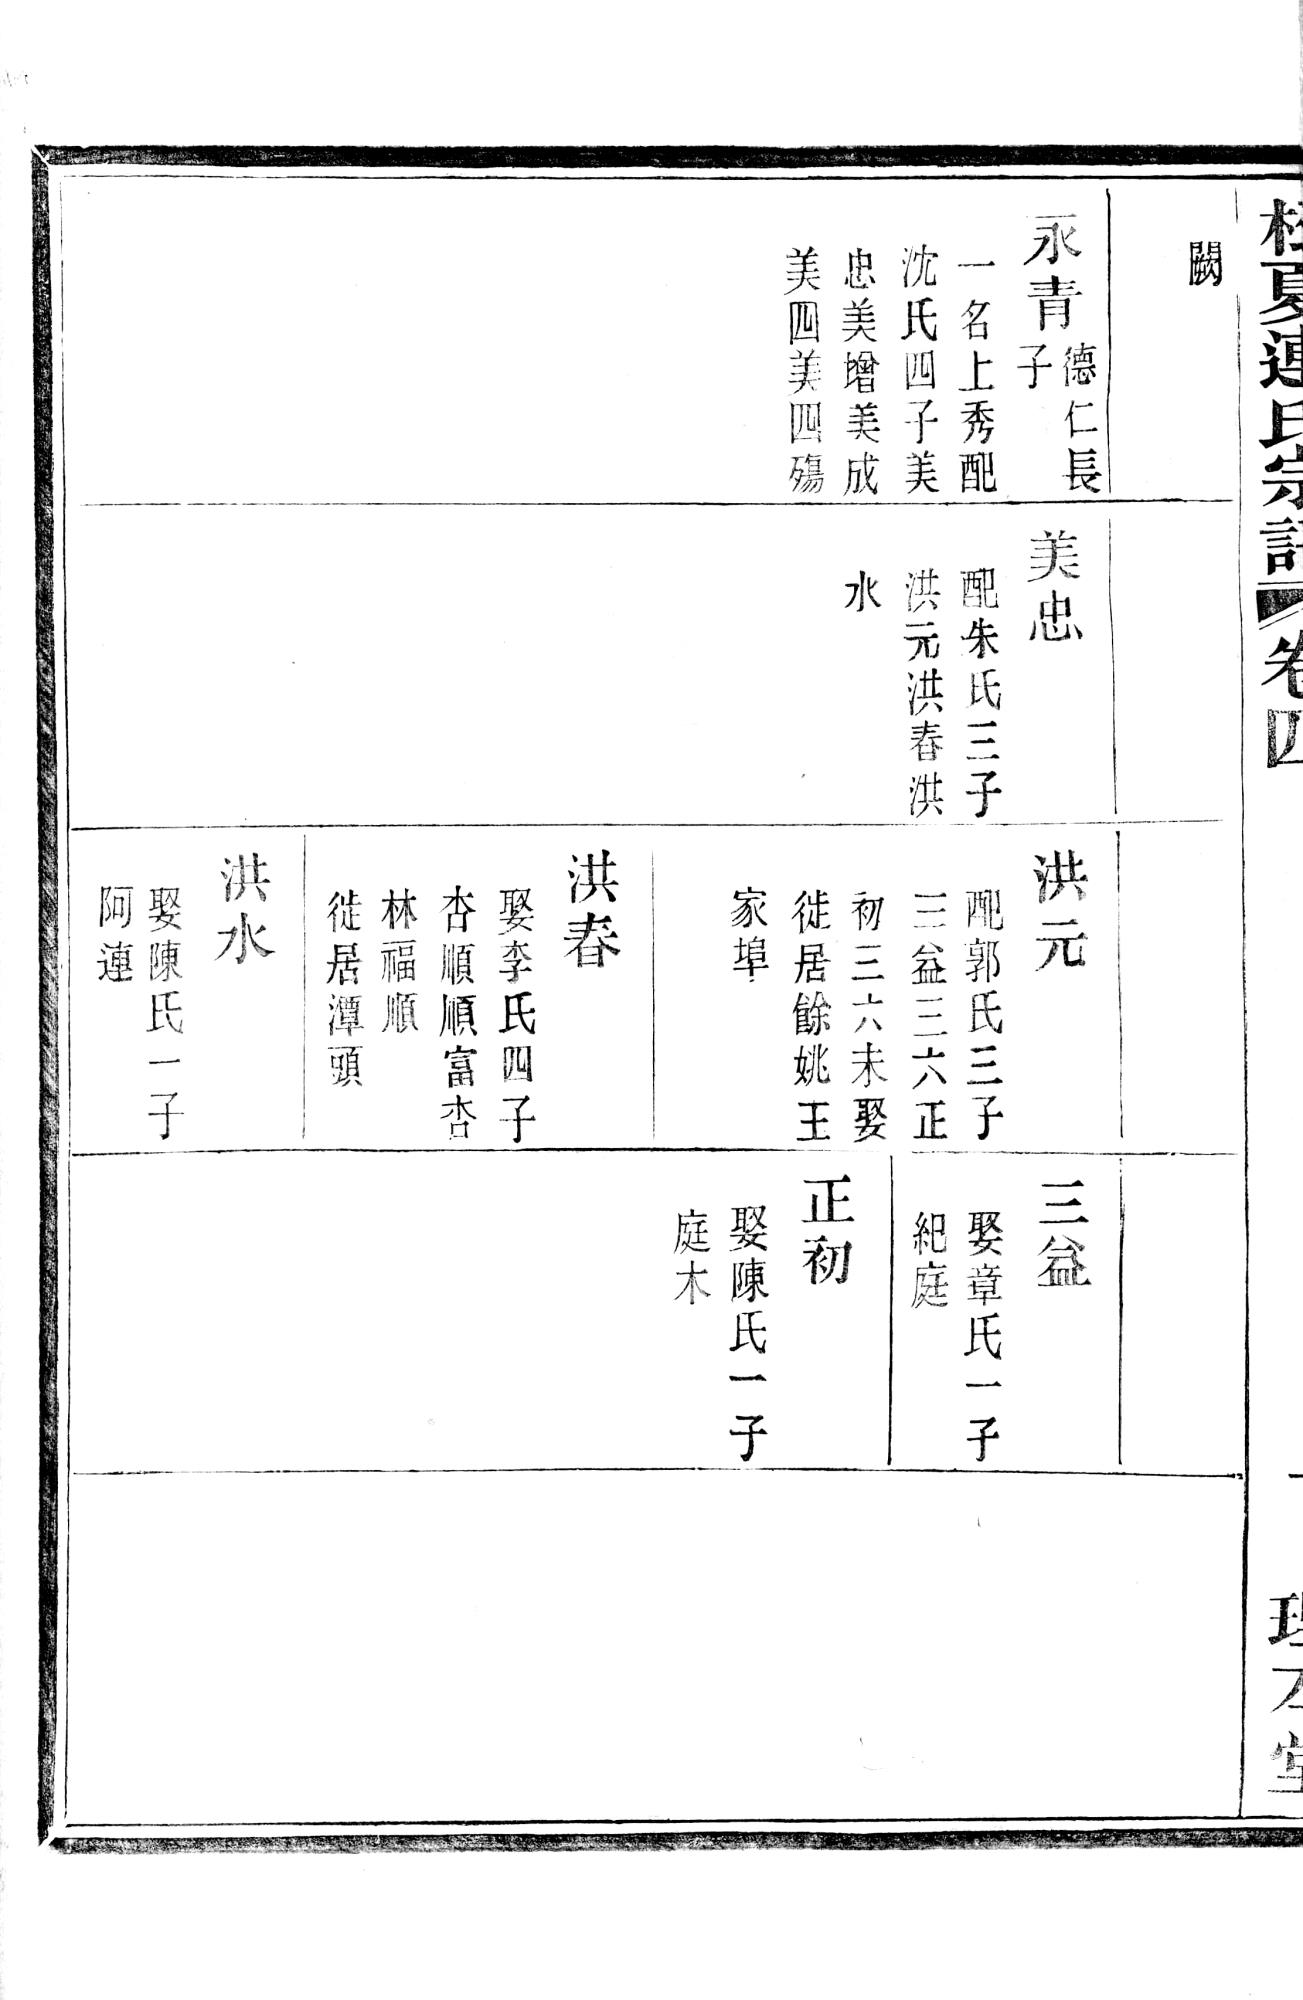 桂夏連氏宗譜 卷四
理本堂
闕
永青 德仁長子
一名上秀配
沈氏四子美
忠美增美成
美四美四殤
美忠
配朱氏三子
洪元洪春洪
水
洪元
配郭氏三子
三益三六正
初三六未娶
徙居餘姚王
家埠
洪春
娶李氏四子
杏順順富杏
林福順
徙居潭頭
洪水
娶陳氏一子
阿連
三益
娶章氏一子
紀庭
正初
娶陳氏一子
庭木